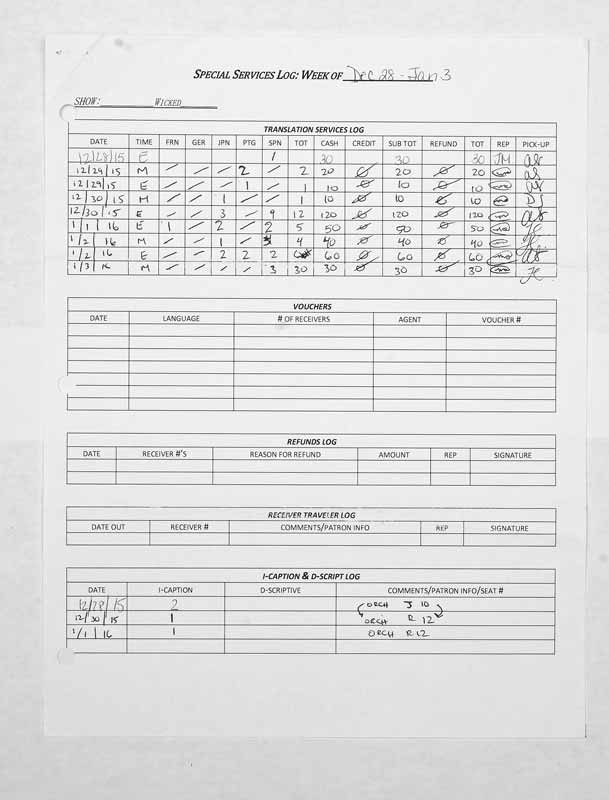 SPECIAL SERVICES LOG: WEEK OF Dec 28 - Jan 3
SHOW: WICKED
TRANSLATION SERVICES LOG
DATE TIME FRN GER JPN PTG SPN TOT CASH CREDIT SUB TOT REFUND TOT REP PICK-UP
12/28/15 E 1 30 30 30 JM
12/29/15 M / / / 2 / 2 20 Ø 20 Ø 20
12/29/15 E / / / 1 / 1 10 Ø 10 Ø 10
12/30/15 M / / 1 / / 1 10 Ø 10 Ø 10 DJ
12/30/15 E / / 3 / 9 12 120 Ø 120 Ø 120
1/1/16 E 1 / 2 / 2 5 50 Ø 50 Ø 50
1/2/16 M / / 1 / 3 4 40 Ø 40 Ø 40
1/2/16 E / / 2 2 2 60 Ø 60 Ø 60
1/3/16 M / / / / 3 30 30 Ø 30 Ø 30
VOUCHERS
DATE LANGUAGE # OF RECEIVERS AGENT VOUCHER #
REFUNDS LOG
DATE RECEIVER #'S REASON FOR REFUND AMOUNT REP SIGNATURE
RECEIVER TRAVELER LOG
DATE OUT RECEIVER # COMMENTS/PATRON INFO REP SIGNATURE
I-CAPTION & D-SCRIPT LOG
DATE I-CAPTION D-SCRIPTIVE COMMENTS/PATRON INFO/SEAT #
12/28/15 2 ORCH J 10
12/30/15 1 ORCH R 12
1/1/16 1 ORCH R12